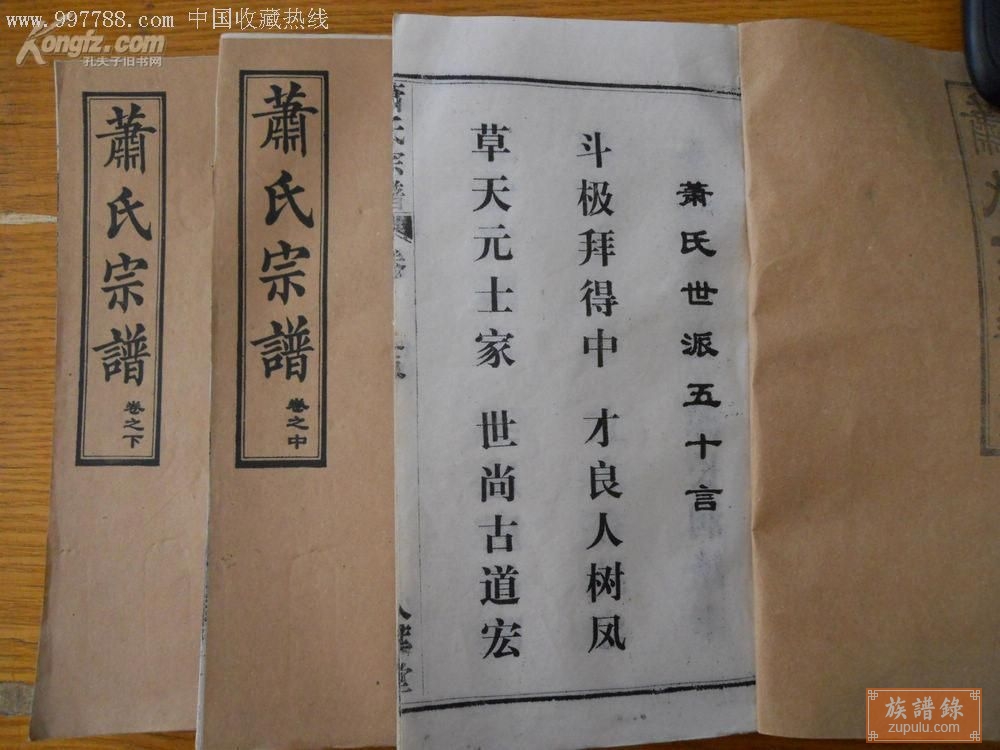 www.997788.com 中国收藏热线
Kongfz.com
孔夫子旧书网
萧氏世派五十言
斗极拜得中 才良人树凤
草天元士家 世尚古道宏
蕭氏宗譜
卷之中
蕭氏宗譜
卷之下
族譜錄
zupulu.com